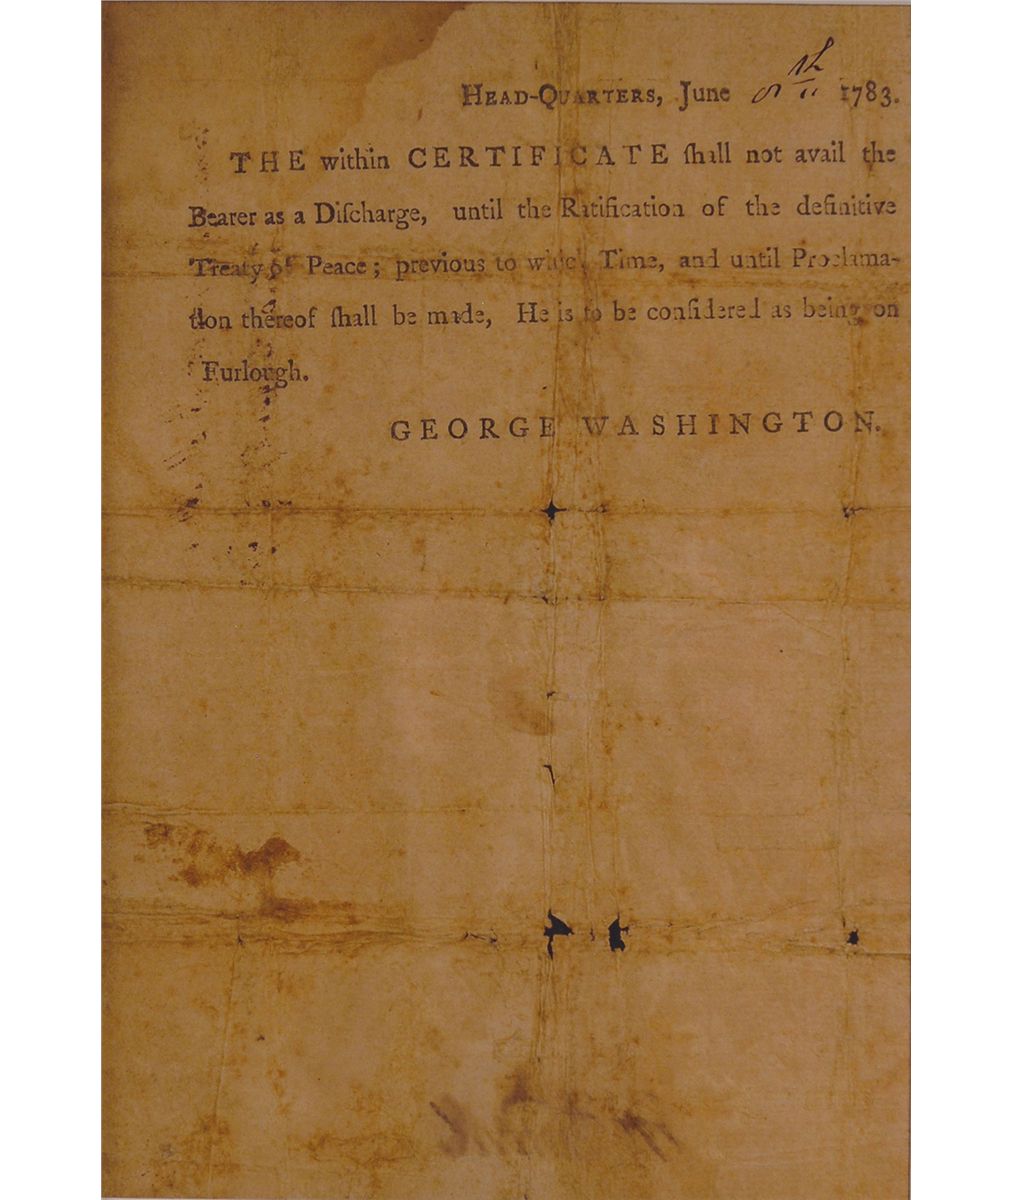 HEAD-QUARTERS, June 8th 1783.
THE within CERTIFICATE ſhall not avail the
Bearer as a Diſcharge, until the Ratification of the definitive
Treaty of Peace; previous to which Time, and until Proclama-
tion thereof ſhall be made, He is to be conſidered as being on
Furlough.
GEORGE WASHINGTON.